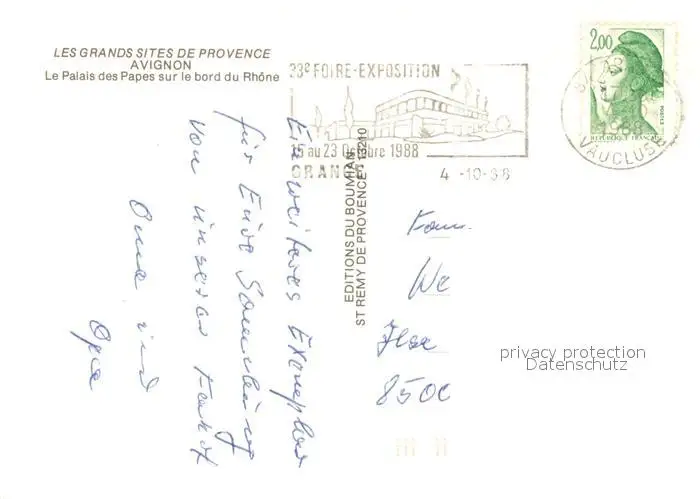 LES GRANDS SITES DE PROVENCE
AVIGNON
Le Palais des Papes sur le bord du Rhône
33e FOIRE-EXPOSITION
15 au 23 Octobre 1988
4 -10-88
2,00
POSTES
REPUBLIQUE FRANÇAISE
1988
VAUCLUSE
EDITIONS DU BOUMIAN
ST REMY DE PROVENCE - 13210
Ein weiteres Exemplar
für Eure Sammlung
von unserer Fahrt
Oma und
Opa
Fam.
We
8500
privacy protection
Datenschutz